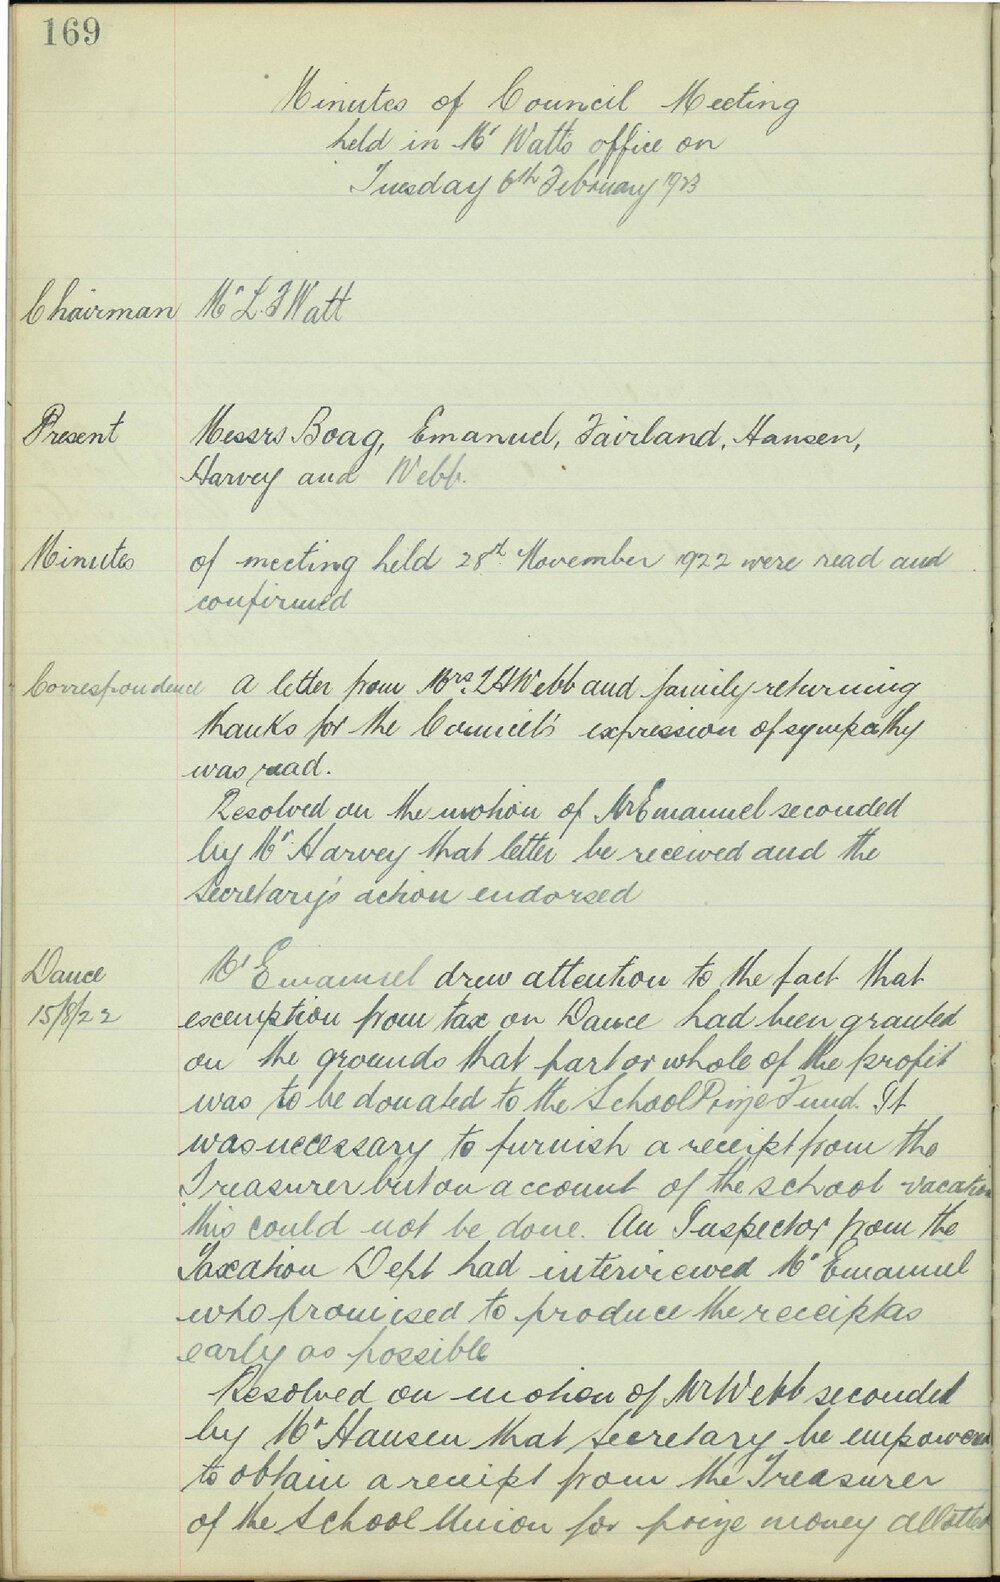 169
Minutes of Council Meeting
held in Mr Watt's office on
Tuesday 6th February 1923
Chairman Mr L. F Watt
Present Messrs Boag, Emanuel, Fairland, Hansen,
Harvey and Webb.
Minutes of meeting held 28th November 1922 were read and
confirmed
Correspondence A letter from Mrs. Webb and family returning
thanks for the Council's expression of sympathy
was read.
Resolved on the motion of Mr Emanuel seconded
by Mr Harvey that letter be received and the
Secretary's action endorsed
Dance Mr Emanuel drew attention to the fact that
15/8/22 exemption from tax on Dance had been granted
on the grounds that part or whole of the profit
was to be donated to the School Prize Fund. It
was necessary to furnish a receipt from the
Treasurer but on account of the school vacation
this could not be done. An Inspector from the
Taxation Dept had interviewed Mr Emanuel
who promised to produce the receipt as
early as possible
Resolved on motion of Mr Webb seconded
by Mr Hansen that Secretary be empowered
to obtain a receipt from the Treasurer
of the School Union for prize money allotted